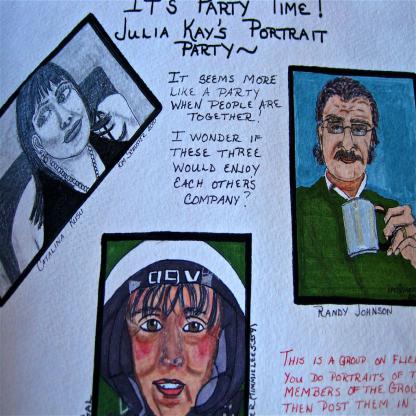 IT'S PARTY TIME!
JULIA KAY'S PORTRAIT
PARTY~
IT SEEMS MORE
LIKE A PARTY
WHEN PEOPLE ARE
TOGETHER!
I WONDER IF
THESE THREE
WOULD ENJOY
EACH OTHERS
COMPANY?
RANDY JOHNSON
THIS IS A GROUP ON FLICK
YOU DO PORTRAITS OF T
MEMBERS OF THE GROU
THEN POST THEM IN
CATALINA
agv